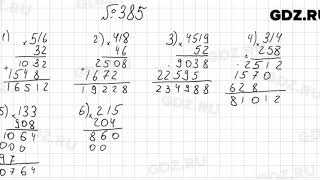 №385
GDZ.RU
1) 516 2) 418 3) 4519 4) 314
32 46 52 258
1032 2508 9038 2512
+1548 1672 22595 1570
16512 19228 234988 628
81012
5) 133 6) 215
908 204
1064 860
00 00
97
0764